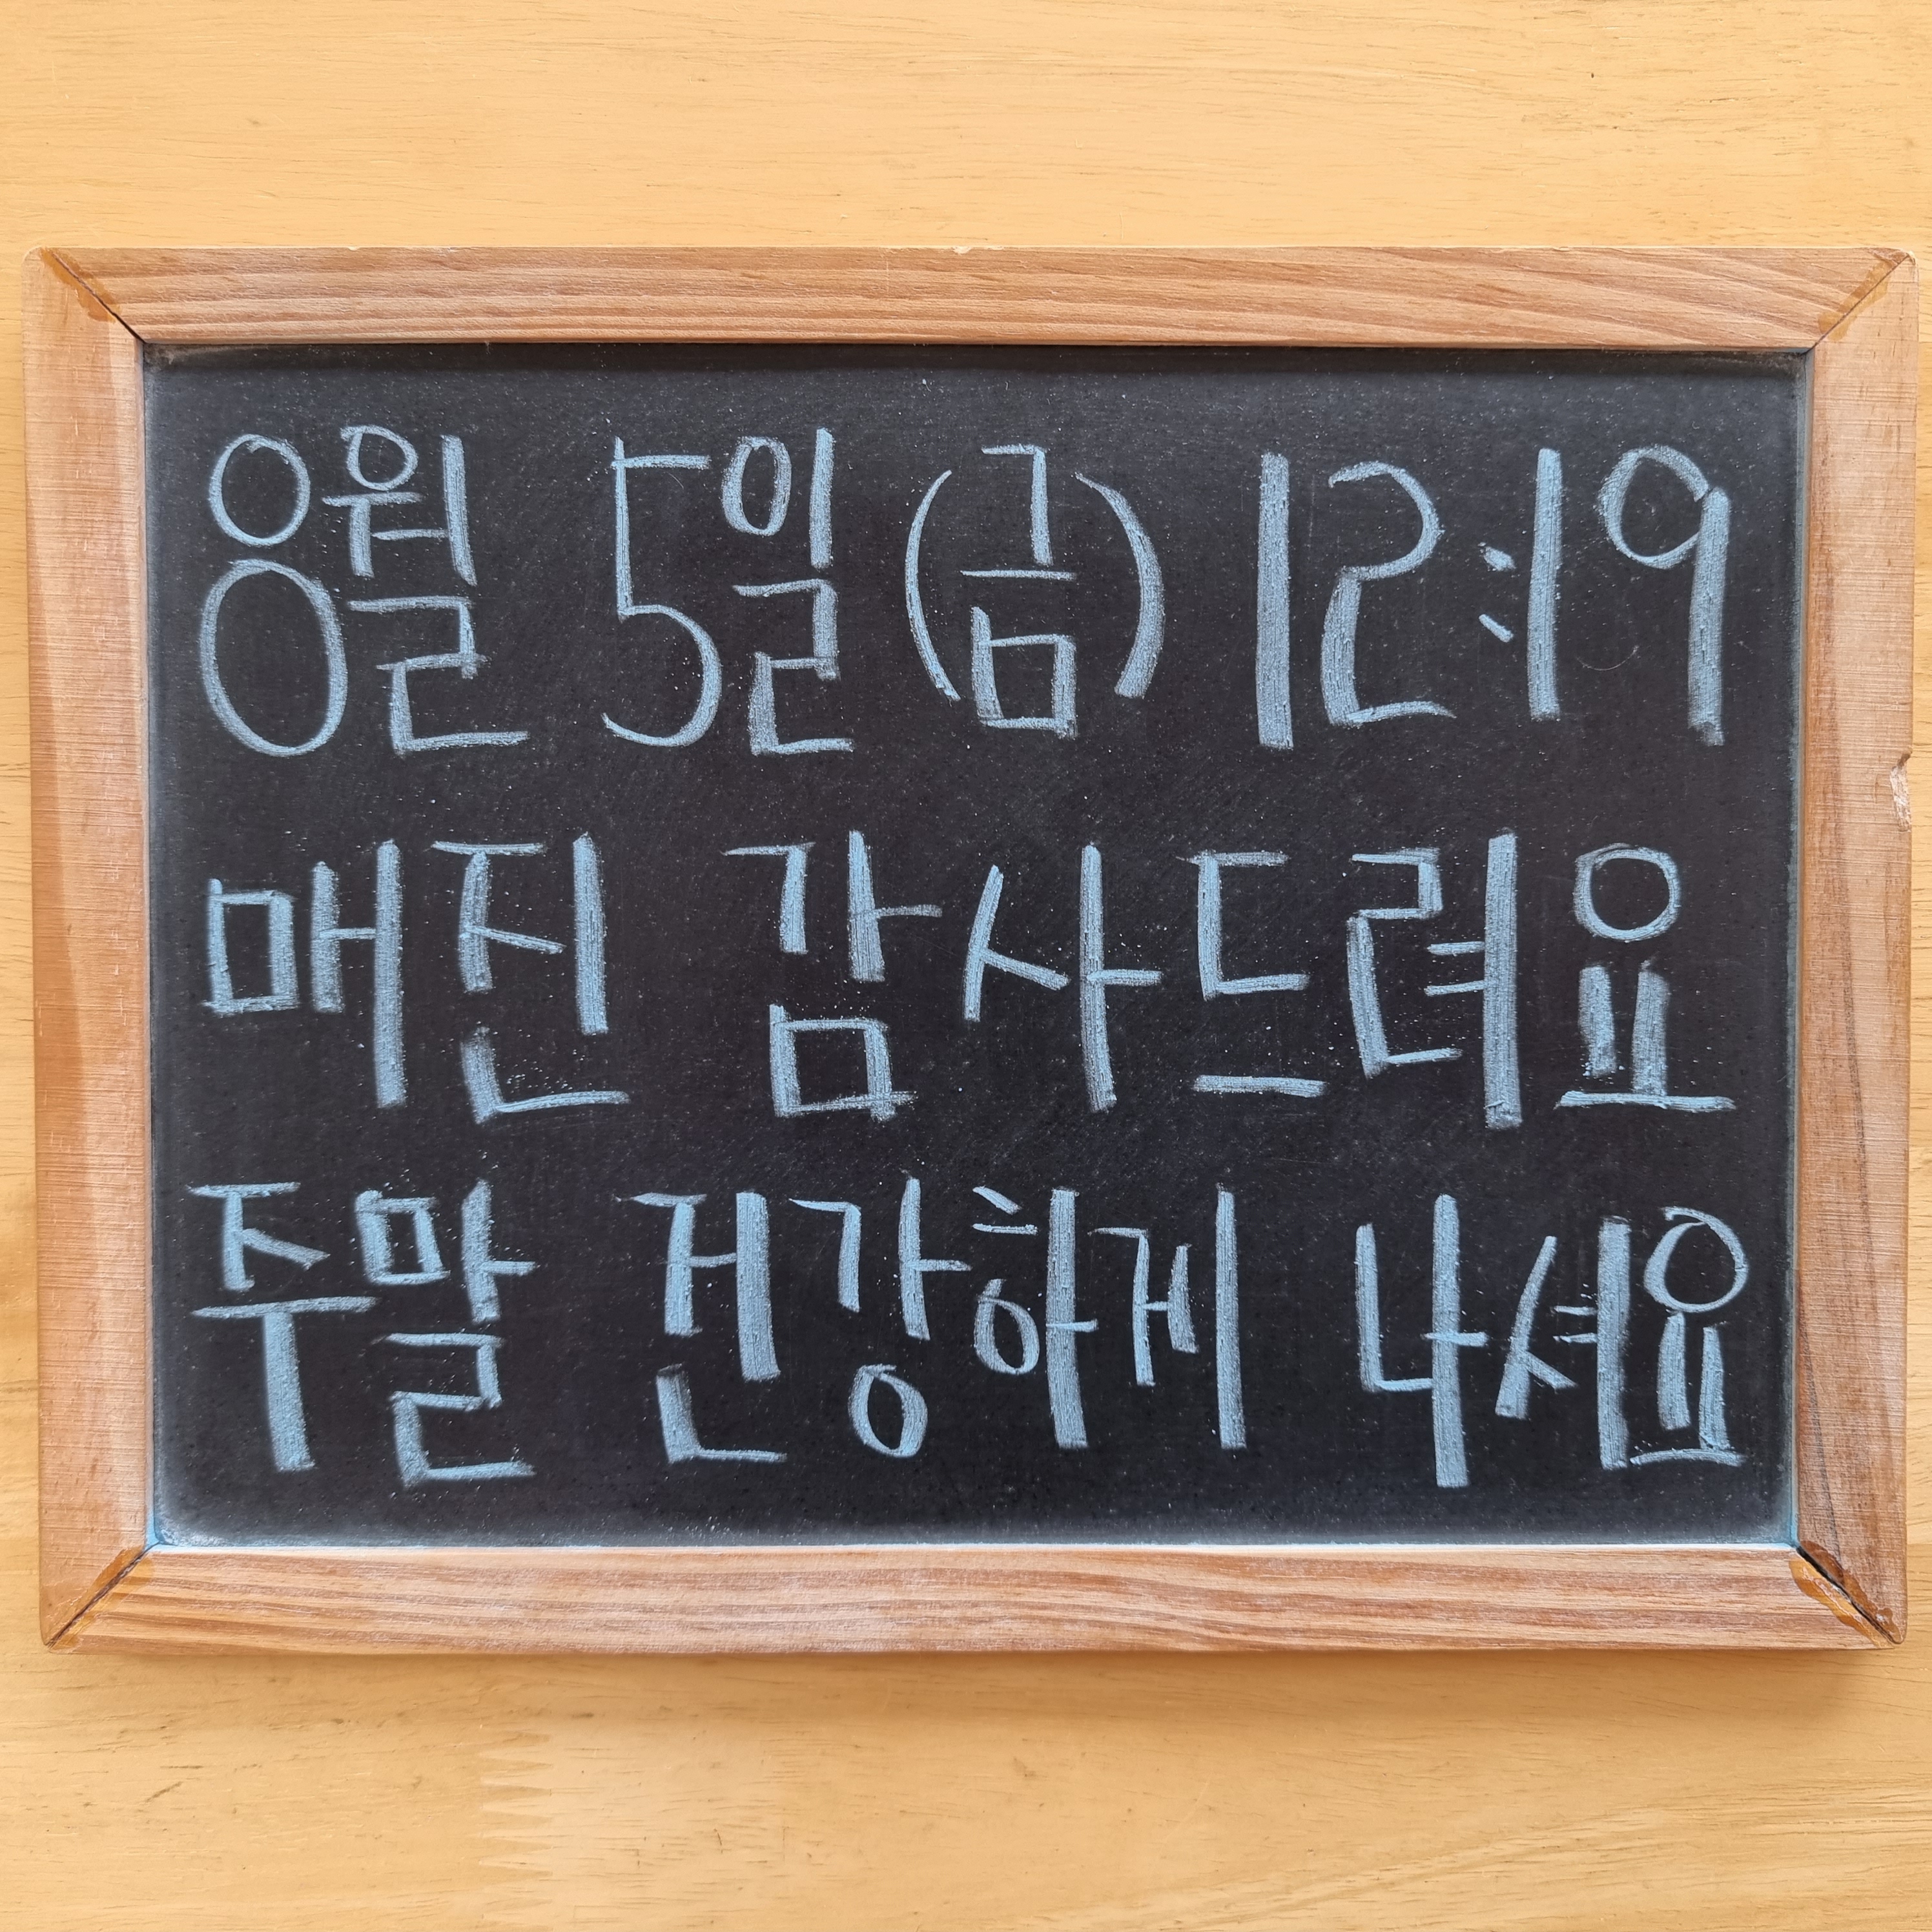 8월 5일(금) 12:19
매진 감사드려요
주말 건강하게 나셔요